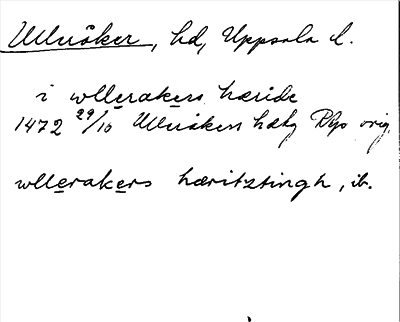 Ulleråker, hd, Uppsala l.
i wllerakers hæride
1472 29/10 Ulleråkers hdtg RAp orig.
wllerakers hæritztingh, ib.